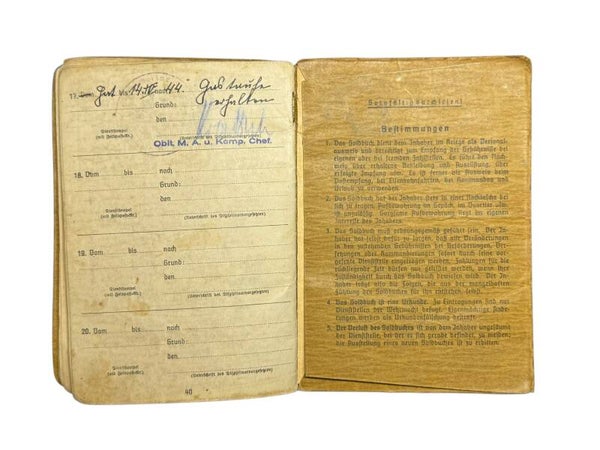 17. Vom Hat bis 14. IV. 44. nach Gastasche
Grund: erhalten
den
Dienststempel (Unterschrift des Disziplinarvorgesetzten)
(mit Feldpostnr.)
Oblt. M. A. u. Komp. Chef.
18. Vom bis nach
Grund:
den
Dienststempel (Unterschrift des Disziplinarvorgesetzten)
(mit Feldpostnr.)
19. Vom bis nach
Grund:
den
Dienststempel (Unterschrift des Disziplinarvorgesetzten)
(mit Feldpostnr.)
20. Vom bis nach
Grund:
den
Dienststempel (Unterschrift des Disziplinarvorgesetzten)
(mit Feldpostnr.)
40
Sorgfältig durchlesen!
Bestimmungen
1. Das Soldbuch dient dem Inhaber im Kriege als Personal-
ausweis und berechtigt zum Empfang der Gebührnisse bei
eigenen oder bei fremden Zahlstellen. Es führt den Nach-
weis über erhaltene Bekleidung und Ausrüstung, über
erfolgte Impfung oder Es ist ferner als Ausweis beim
Postempfang, bei Eisenbahnfahrten, bei Kommandos und
Urlaub zu verwenden.
2. Das Soldbuch hat der Inhaber stets in einer Rocktasche bei
sich zu tragen. Aufbewahrung im Gepäck, im Quartier usw. ist
unzulässig. Sorgsame Aufbewahrung liegt im eigenen
Interesse des Inhabers.
3. Das Soldbuch muß ordnungsgemäß geführt sein. Der In-
haber hat selbst dafür zu sorgen, daß alle Veränderungen
in den zustehenden Gebührnissen bei Beförderungen, Verset-
zungen oder Kommandierungen sofort durch seine vor-
gesetzte Dienststelle eingetragen werden. Zahlungen für die
rückliegende Zeit dürfen nur geleistet werden, wenn ihre
Zuständigkeit durch das Soldbuch nachgewiesen ist. Der In-
haber trägt also die Folgen, die aus der mangelhaften
Führung des Soldbuches für ihn entstehen, selbst.
4. Das Soldbuch ist eine Urkunde. Zu Eintragungen sind nur
Dienststellen der Wehrmacht befugt. Eigenmächtige Ände-
rungen werden als Urkundenfälschung bestraft.
5. Der Verlust des Soldbuches ist von dem Inhaber ungesäumt
der Dienststelle, bei der er sich gerade befindet, zu melden;
die Ausstellung eines neuen Soldbuches ist zu erbitten.